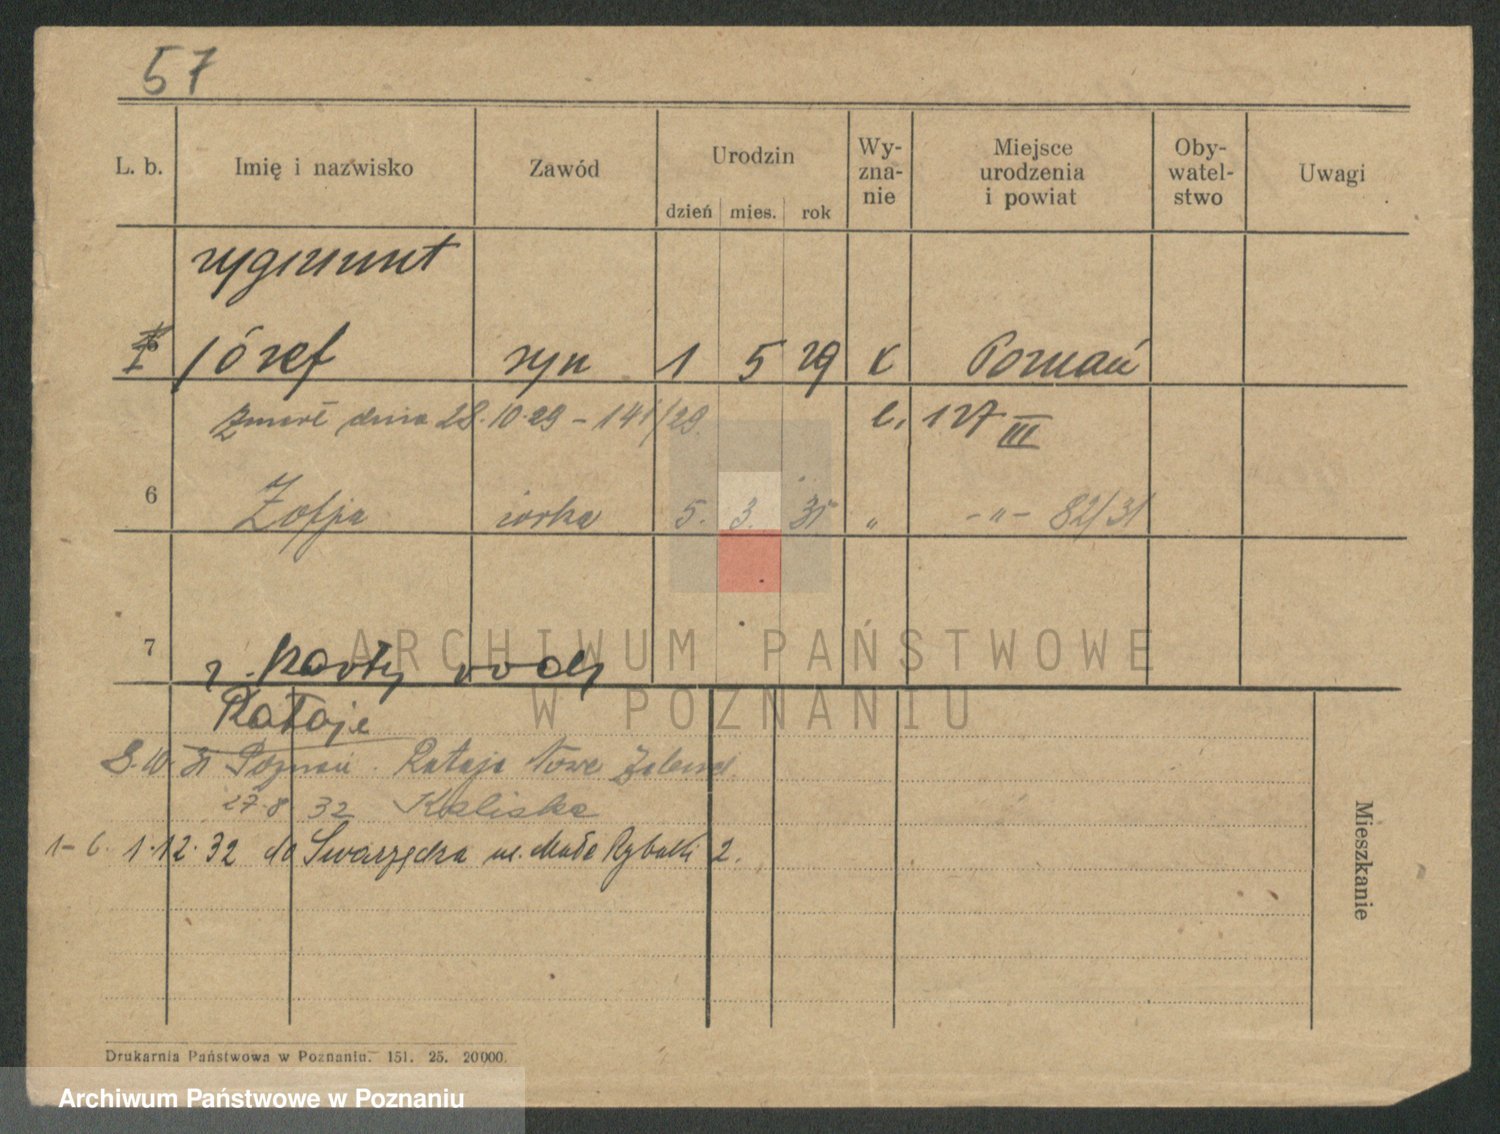 57
L. b. Imię i nazwisko Zawód Urodzin Wy- zna- nie Miejsce urodzenia i powiat Oby- watel- stwo Uwagi
dzień mies. rok
Zygmunt
I Józef syn 1 5 29 k Poznań
Zmarł dnia 28.10.29 - 141/29. l. 127 III
6 Zofja córka 5. 3. 31 " -"- 82/31
7 z karty rodz
Rataje
8.10.31 Poznań Rataje Nowe
27.8.32 Kaliska
1-6. 1.12.32 do Swarzędza ul. Małe Rybaki 2.
Mieszkanie
Drukarnia Państwowa w Poznaniu. 151. 25. 20000.
ARCHIWUM PAŃSTWOWE
W POZNANIU
Archiwum Państwowe w Poznaniu